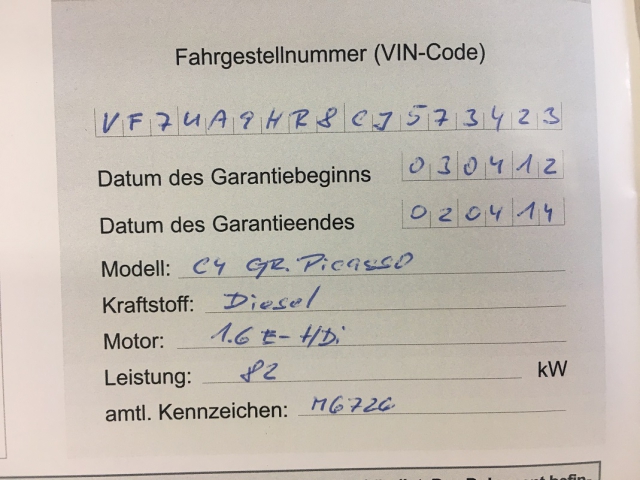 Fahrgestellnummer (VIN-Code)
VF7UA9HR8CJ573423
Datum des Garantiebeginns 030412
Datum des Garantieendes 020414
Modell: C4 GR. Picasso
Kraftstoff: Diesel
Motor: 1.6 E-HDi
Leistung: 82 kW
amtl. Kennzeichen: